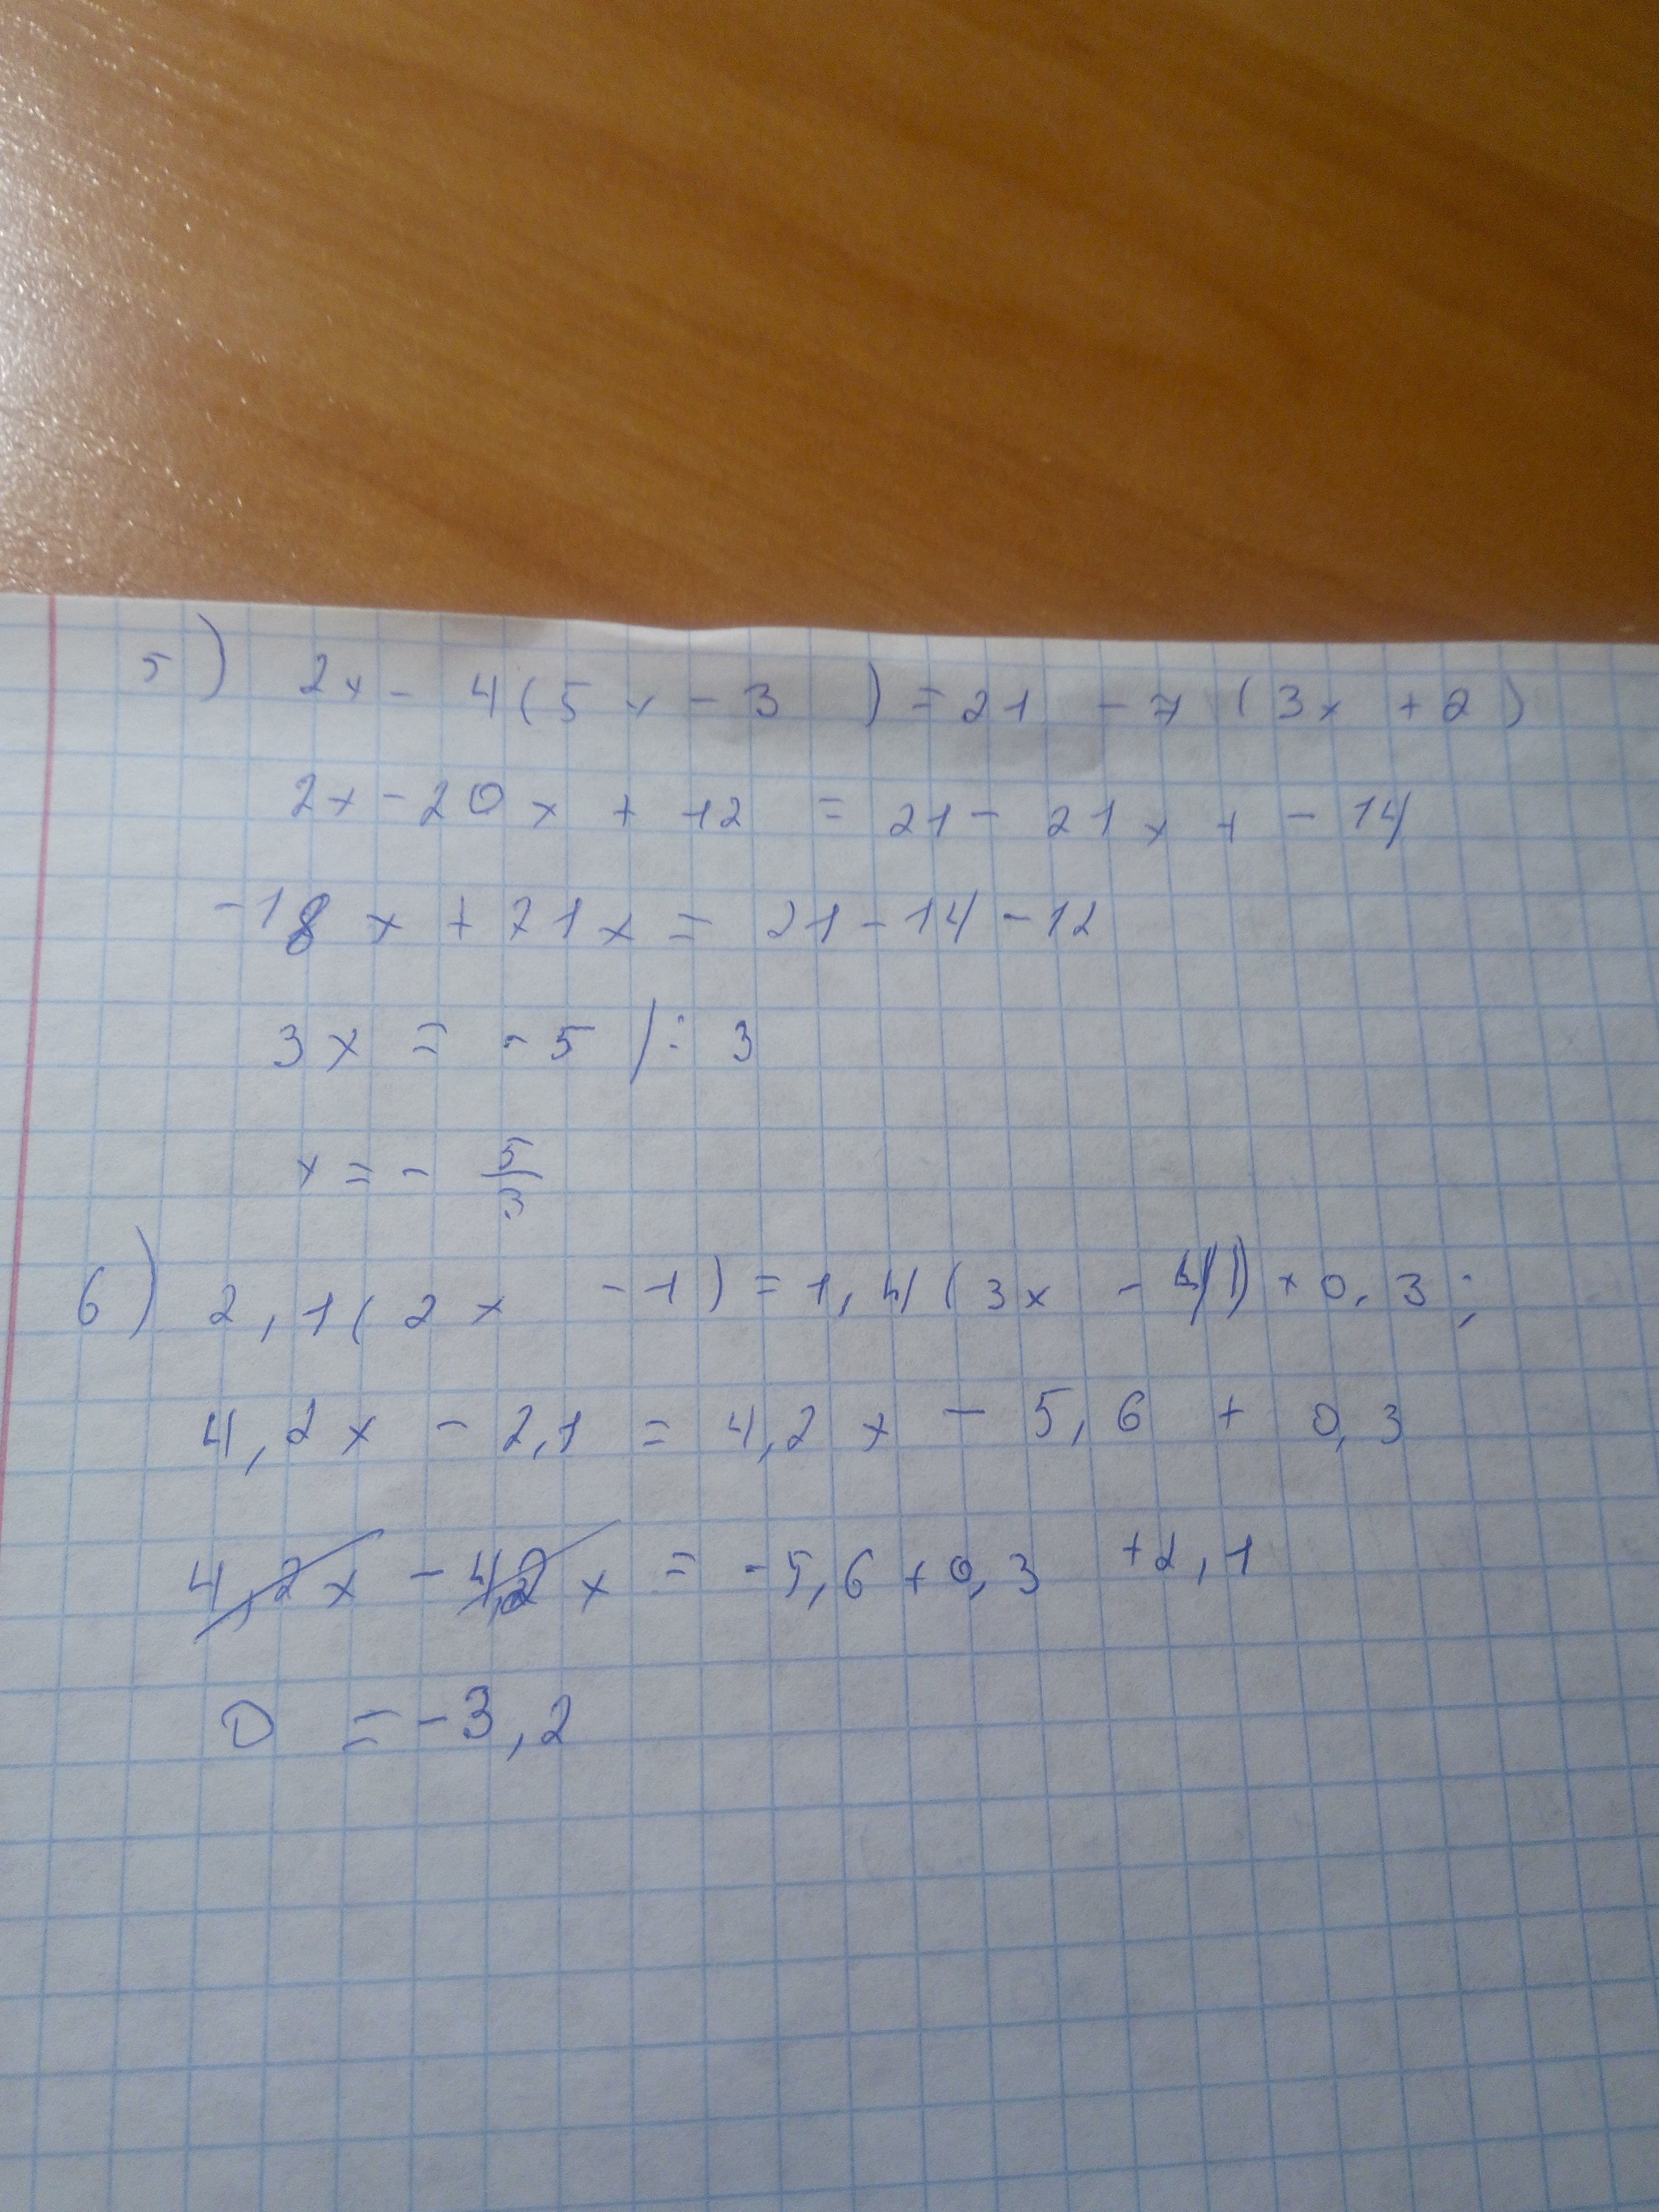 5) 2x - 4(5x - 3) = 21 - 7(3x + 2)
2x - 20x + 12 = 21 - 21x + - 14
-18x + 21x = 21 - 14 - 12
3x = -5 /: 3
x = - 5/3
6) 2,1(2x - 1) = 1,4(3x - 4) + 0,3;
4,2x - 2,1 = 4,2x - 5,6 + 0,3
4,2x - 4,2x = -5,6 + 0,3 + 2,1
0 = -3,2